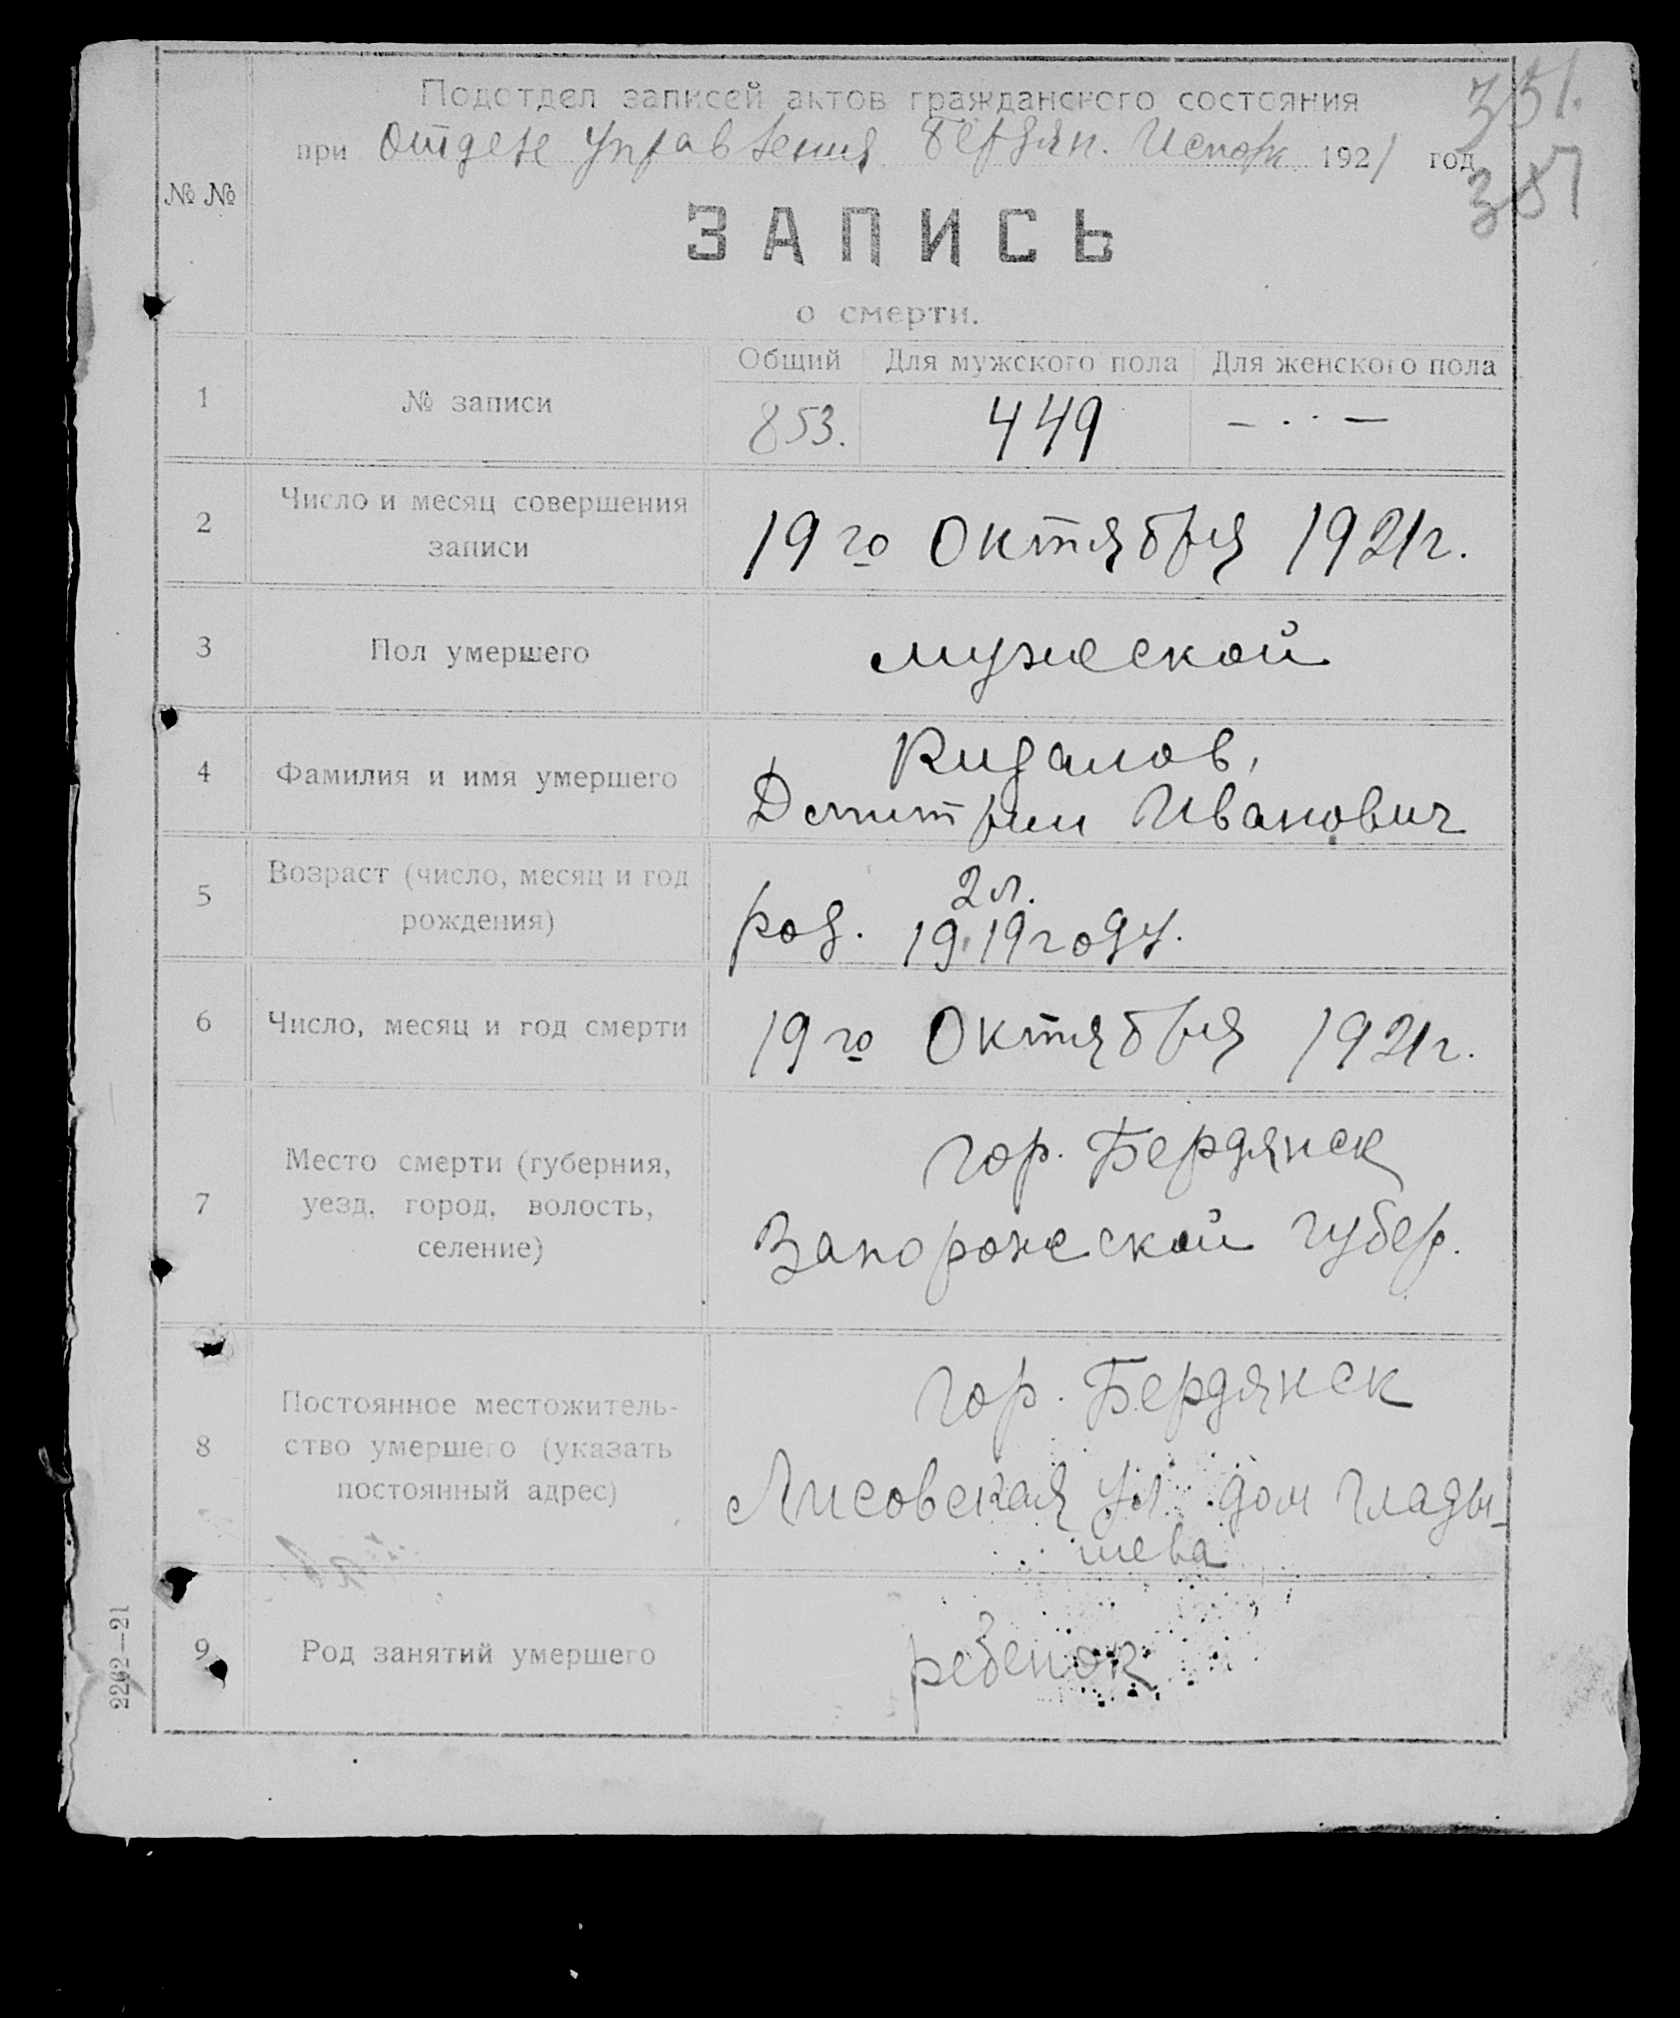 351.
Подотдел записей актов гражданского состояния
при Отделе Управления Бердян. Исполк 1921 год
381
№ №
ЗАПИСЬ
о смерти.
Общий Для мужского пола Для женского пола
1 № записи 853. 449 — · · —
2 Число и месяц совершения
записи
19го Октября 1921г.
3 Пол умершего мужеской
4 Фамилия и имя умершего
Кидалов,
Дмитрии Иванович
5 Возраст (число, месяц и год
рождения)
2 л.
род. 1919 году.
6 Число, месяц и год смерти 19го Октября 1921г.
7 Место смерти (губерния,
уезд, город, волость,
селение)
гор. Бердянск
Запорожеской губер.
8 Постоянное местожитель-
ство умершего (указать
постоянный адрес)
гор. Бердянск
Лисовская ул. дом Глады-
шева
9 Род занятий умершего ребенок
2262—21